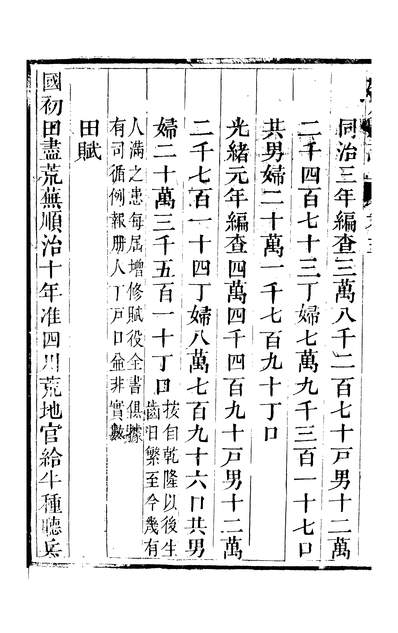 同治三年編查三萬八千二百七十戸男十二萬
二千四百七十三丁婦七萬九千三百一十七口
共男婦二十萬一千七百九十丁口
光緒元年編查四萬四千四百九十戸男十二萬
二千七百一十四丁婦八萬七百九十六口共男
婦二十萬三千五百一十丁口
按自乾隆以後生
齒日繁至今幾有
人滿之患每屆增修賦役全書俱據
有司循例報册人丁戸口並非實數
田賦
國初田盡荒蕪順治十年准四川荒地官給牛種聽兵